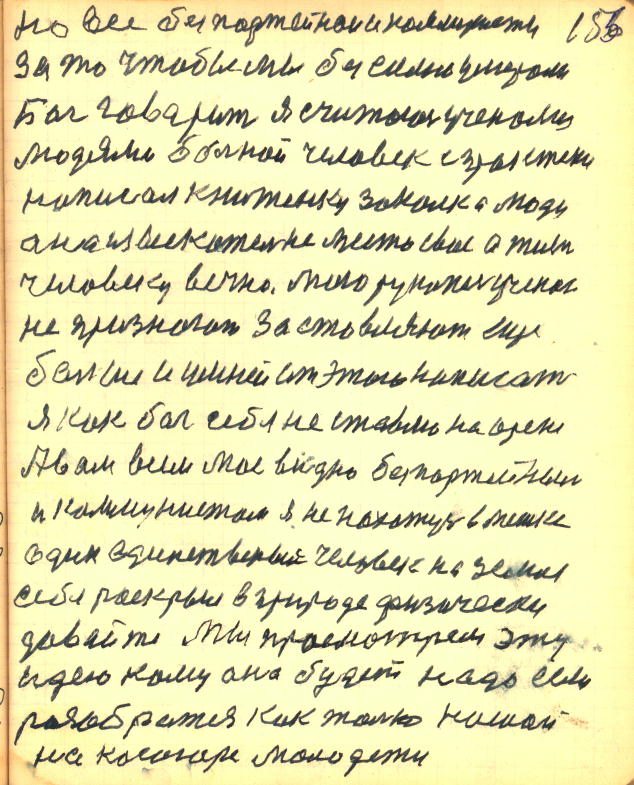 но все беспартейнаи и коммунисты 156
За то чтобы мы без силно умерали
Бог говарит я считаюс учеными
людями болной человек с
написал книженку Закалка люди
она
человеку вечно. Мою рукопис ученаи
не признают Заставляют еще
болше и умней от этого написат
я как бог себя не ставлю на арене
А вам всем мое видно безпартейным
и коммунистам я не нахожус в мешке
один единственый человек на земле
себя раскрыл в природе физически
давайте мы просмотрем эту
идею кому она будет надо если
разобратся как толко нашой
на косогоре молодежи